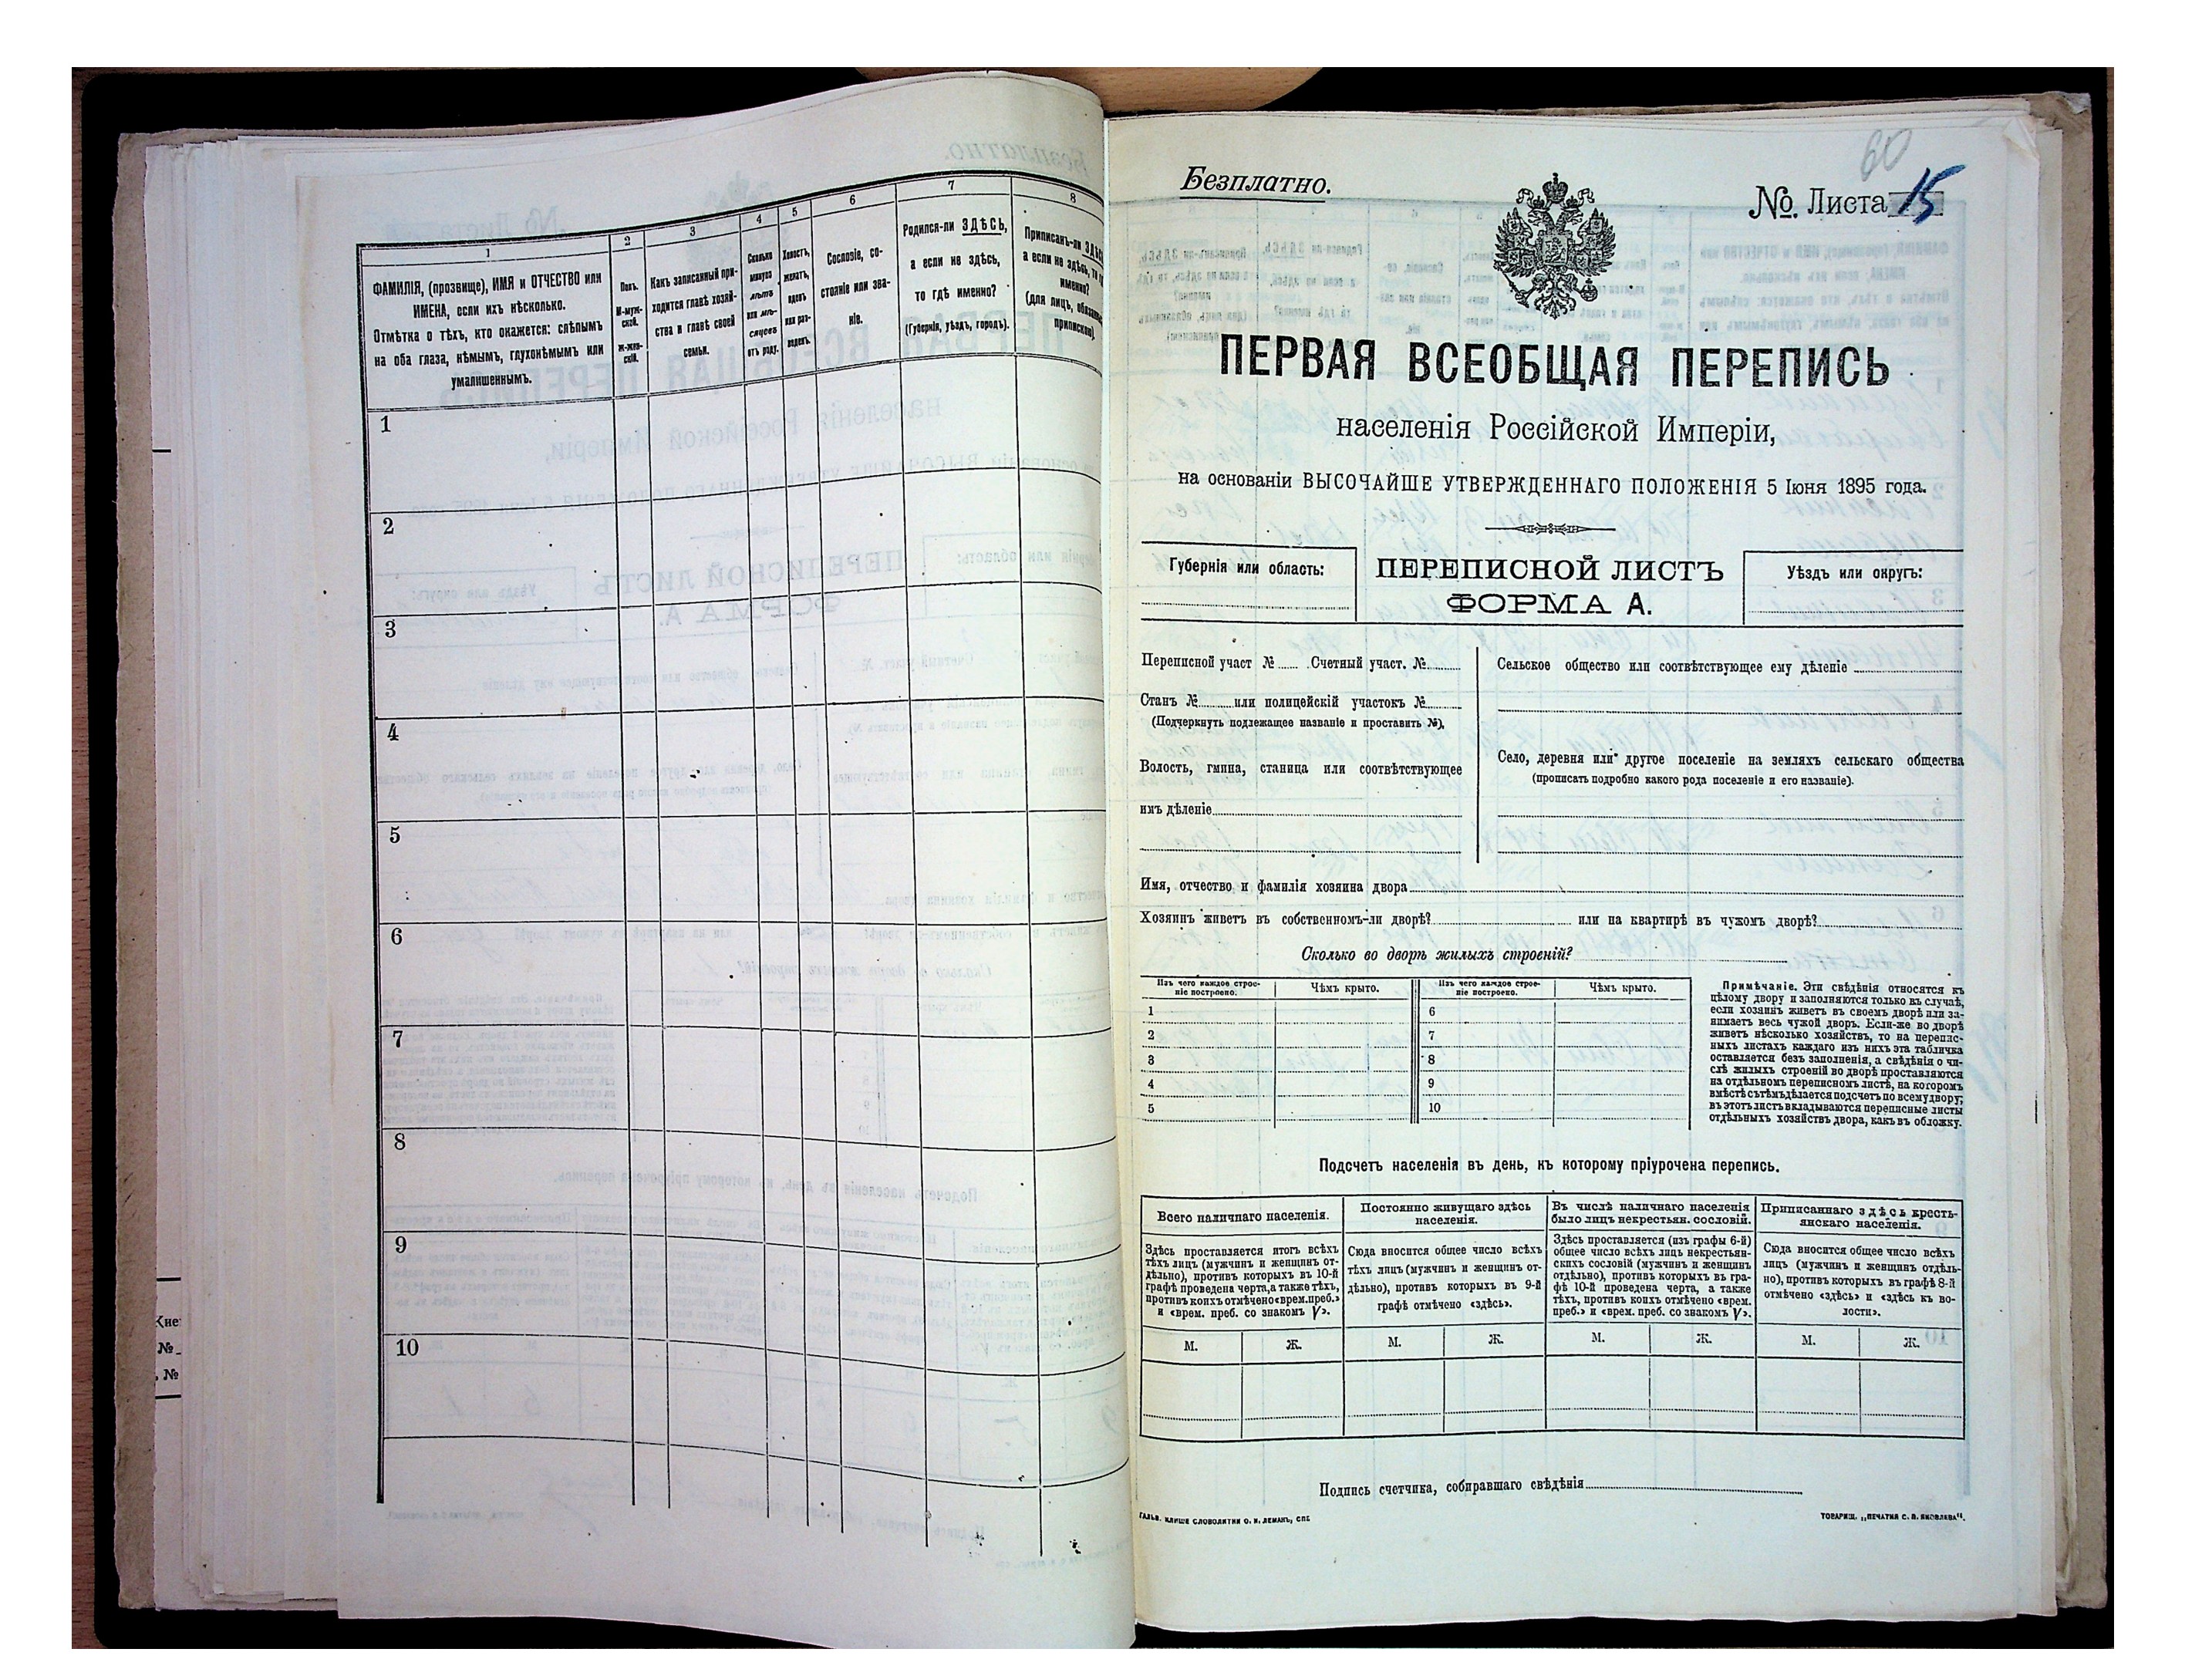 1
2
3
4
5
6
7
8
ФАМИЛІЯ, (прозвище), ИМЯ и ОТЧЕСТВО или
ИМЕНА, если ихъ нѣсколько.
Отмѣтка о тѣхъ, кто окажется: слѣпымъ
на оба глаза, нѣмымъ, глухонѣмымъ или
умалишеннымъ.
Полъ.
М-муж-
ской.
ж-жен-
скій.
Какъ записанный при-
ходится главѣ хозяй-
ства и главѣ своей
семьи.
Сколько
минуло
лѣтъ
или мѣ-
сяцевъ
отъ роду.
Холостъ,
женатъ,
вдовъ
или раз-
веденъ.
Сословіе, со-
стояніе или зва-
ніе.
Родился-ли ЗДѢСЬ,
а если не здѣсь,
то гдѣ именно?
(Губернія, уѣздъ, городъ).
Приписанъ-ли
а если не здѣсь, то
именно?
(для лицъ,
1
2
3
4
5
6
7
8
9
10
№
№
60
Безплатно.
№. Листа 15
ПЕРВАЯ ВСЕОБЩАЯ ПЕРЕПИСЬ
населенія Россійской Имперіи,
на основаніи ВЫСОЧАЙШЕ УТВЕРЖДЕННАГО ПОЛОЖЕНІЯ 5 Іюня 1895 года.
Губернія или область:
ПЕРЕПИСНОЙ ЛИСТЪ
ФОРМА А.
Уѣздъ или округъ:
Переписной участ № Счетный участ. №
Станъ № или полицейскій участокъ №
(Подчеркнуть подлежащее названіе и проставить №).
Волость, гмина, станица или соотвѣтствующее
имъ дѣленіе
Сельское общество или соотвѣтствующее ему дѣленіе
Село, деревня или другое поселеніе на земляхъ сельскаго общества
(прописать подробно какого рода поселеніе и его названіе).
Имя, отчество и фамилія хозяина двора
Хозяинъ живетъ въ собственномъ-ли дворѣ? или на квартирѣ въ чужомъ дворѣ?
Сколько во дворѣ жилыхъ строеній?
Изъ чего каждое строе-
ніе построено.
Чѣмъ крыто.
Изъ чего каждое строе-
ніе построено.
Чѣмъ крыто.
1
2
3
4
5
6
7
8
9
10
Примѣчаніе. Эти свѣдѣнія относятся къ
цѣлому двору и заполняются только въ случаѣ,
если хозяинъ живетъ въ своемъ дворѣ или за-
нимаетъ весь чужой дворъ. Если-же во дворѣ
живетъ нѣсколько хозяйствъ, то на перепис-
ныхъ листахъ каждаго изъ нихъ эта табличка
оставляется безъ заполненія, а свѣдѣнія о чи-
слѣ жилыхъ строеній во дворѣ проставляются
на отдѣльномъ переписномъ листѣ, на которомъ
вмѣстѣ съ тѣмъ дѣлается подсчетъ по всему двору;
въ этотъ листъ вкладываются переписные листы
отдѣльныхъ хозяйствъ двора, какъ въ обложку.
Подсчетъ населенія въ день, къ которому пріурочена перепись.
Всего наличнаго населенія.
Здѣсь проставляется итогъ всѣхъ
тѣхъ лицъ (мужчинъ и женщинъ от-
дѣльно), противъ которыхъ въ 10-й
графѣ проведена черта, а также тѣхъ,
противъ коихъ отмѣчено «врем. преб.»
и «врем. преб. со знакомъ V».
Постоянно живущаго здѣсь
населенія.
Сюда вносится общее число всѣхъ
тѣхъ лицъ (мужчинъ и женщинъ от-
дѣльно), противъ которыхъ въ 9-й
графѣ отмѣчено «здѣсь».
Въ числѣ наличнаго населенія
было лицъ некрестьян. сословій.
Здѣсь проставляется (изъ графы 6-й)
общее число всѣхъ лицъ некрестьян-
скихъ сословій (мужчинъ и женщинъ
отдѣльно), противъ которыхъ въ гра-
фѣ 10-й проведена черта, а также
тѣхъ, противъ коихъ отмѣчено «врем.
преб.» и «врем. преб. со знакомъ V».
Приписаннаго здѣсь кресть-
янскаго населенія.
Сюда вносится общее число всѣхъ
лицъ (мужчинъ и женщинъ отдѣль-
но), противъ которыхъ въ графѣ 8-й
отмѣчено «здѣсь» и «здѣсь къ во-
лости».
М. Ж. М. Ж. М. Ж. М. Ж.
Подпись счетчика, собиравшаго свѣдѣнія
ГАЛЬВ. КЛИШЕ СЛОВОЛИТНИ О. И. ЛЕМАНЪ, СПБ
ТОВАРИЩ. „ПЕЧАТНЯ С. П. ЯКОВЛЕВА“.